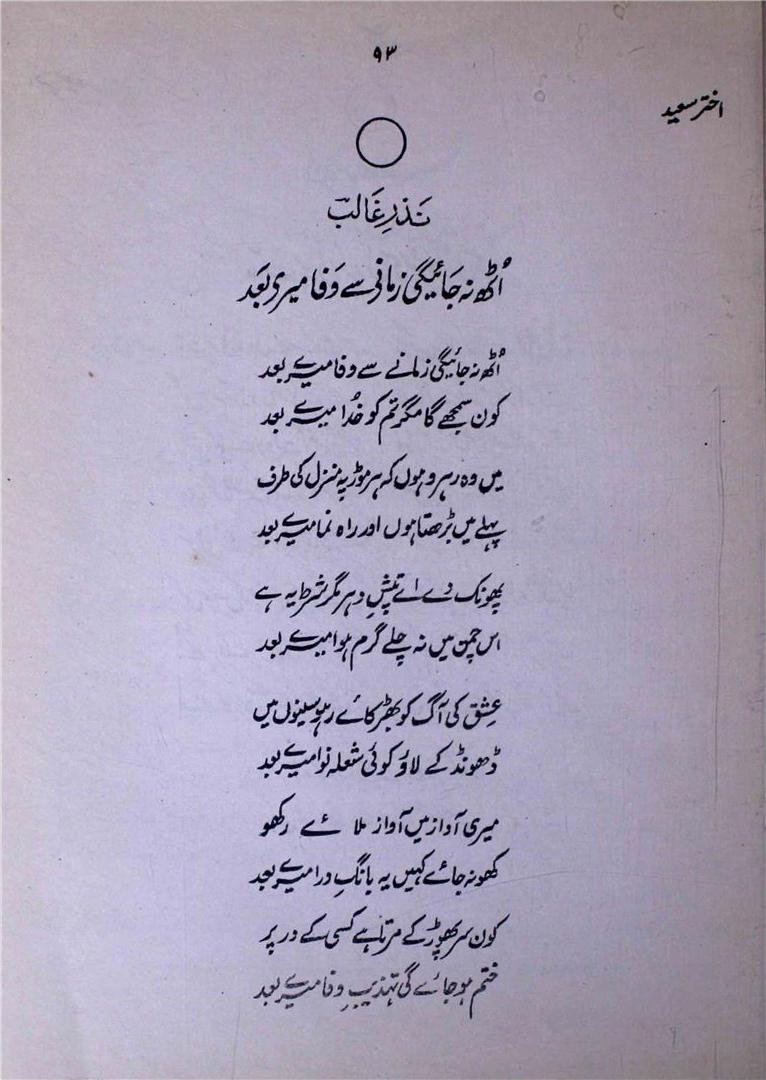 ۹۳
اختر سعید
نذرِ غالب
اُٹھ نہ جائیگی زمانی سے وَفا میری بعَد
اُٹھ نہ جائیگی زمانے سے وفا میرے بعد
کون سمجھے گا مگر تم کو خُدا میرے بعد
میں وہ رہرو ہوں کہ ہر موڑ پہ منزل کی طرف
پہلے میں بڑھتا ہوں اور راہ نما میرے بعد
پھونک دے اے تپشِ دہر مگر شرط یہ ہے
اس چمن میں نہ چلے گرم ہوا میرے بعد
عشق کی آگ کو بھڑکائے رہو سینوں میں
ڈھونڈ کے لاؤ کوئی شعلہ نوا میرے بعد
میری آواز میں آواز ملائے رکھو
کھو نہ جائے کہیں یہ بانگِ درا میرے بعد
کون سر پھوڑ کے مرتا ہے کسی کے در پر
ختم ہو جائے گی تہذیبِ وفا میرے بعد